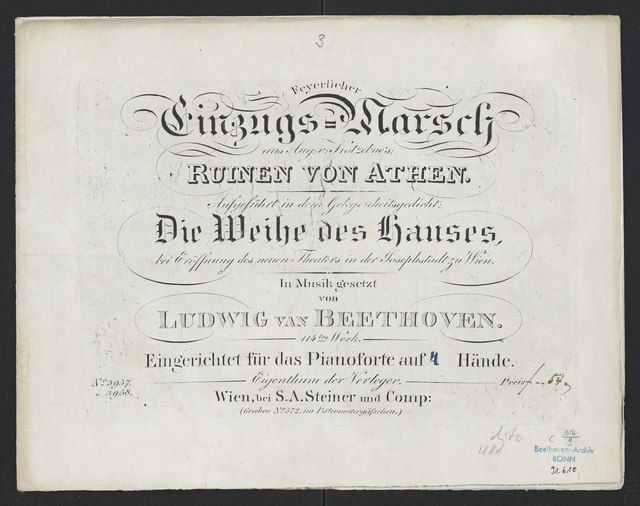 3
Feyerlicher
Einzugs=Marsch
aus Aug. v. Kotzebue's:
RUINEN VON ATHEN.
Aufgeführt in dem Gelegenheitsgedicht:
Die Weihe des Hauses,
bei Eröffnung des neuen Theaters in der Josephstadt zu Wien.
In Musik gesetzt
von
LUDWIG VAN BEETHOVEN.
114tes Werk.
Eingerichtet für das Pianoforte auf 4 Hände.
Eigenthum der Verleger.
No. 3957.
" 3958.
Preis f
Wien, bei S.A. Steiner und Comp:
(Graben No. 572. im Paternostergässchen.)
dito
C 114/9
Beethoven-Archiv
BONN